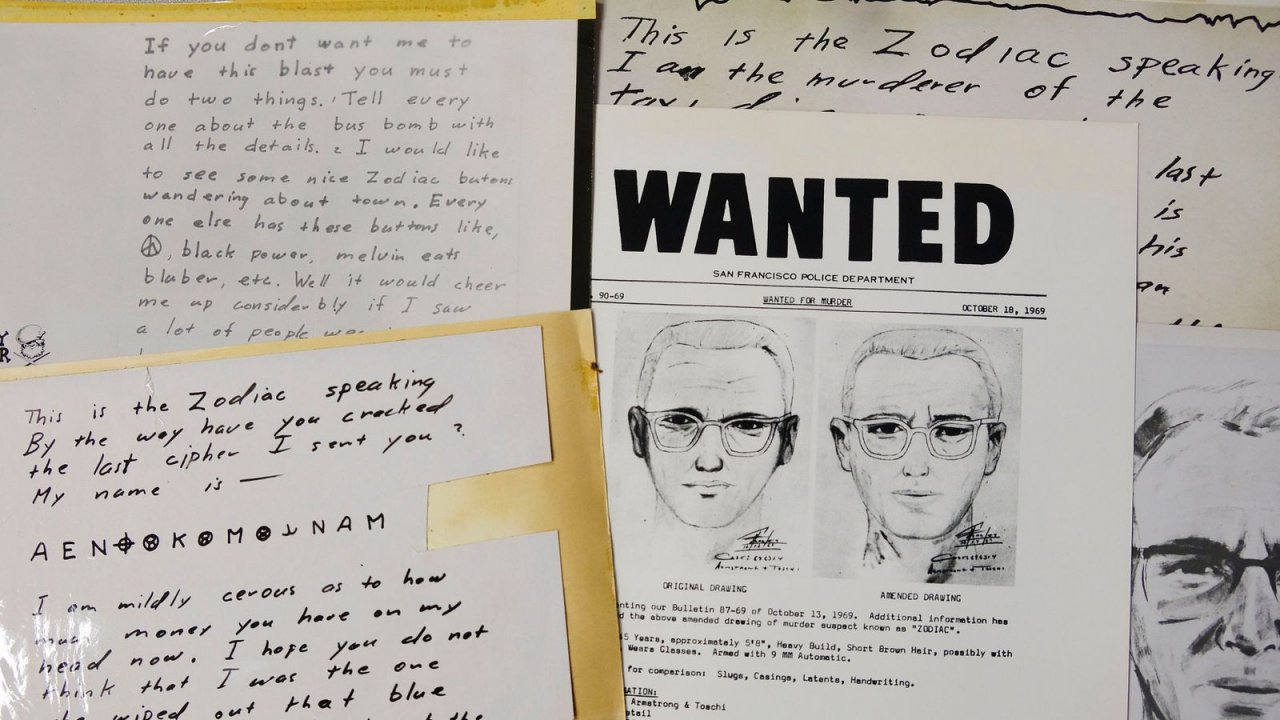 If you dont want me to
have this blast you must
do two things. 1 Tell every
one about the bus bomb with
all the details. 2 I would like
to see some nice Zodiac butons
wandering about town. Every
one else has these buttons like,
☮, black power, melvin eats
bluber, etc. Well it would cheer
me up considerbly if I saw
a lot of people
This is the Zodiac speaking
I am the murderer of the
last
is
his
an
This is the Zodiac speaking
By the way have you cracked
the last cipher I sent you?
My name is —
A E N ⌖ ⊗ K ⊗ M ⊗ ⅃ N A M
I am mildly cerous as to how
much money you have on my
head now. I hope you do not
think that I was the one
wiped out that blue
WANTED
SAN FRANCISCO POLICE DEPARTMENT
90-69 WANTED FOR MURDER OCTOBER 18, 1969
ORIGINAL DRAWING AMENDED DRAWING
nting our Bulletin 87-69 of October 13, 1969. Additional information has
d the above amended drawing of murder suspect known as "ZODIAC".
5 Years, approximately 5'8", Heavy Build, Short Brown Hair, possibly with
Wears Glasses. Armed with 9 MM Automatic.
for comparison: Slugs, Casings, Latents, Handwriting.
ATION:
Armstrong & Toschi
etail